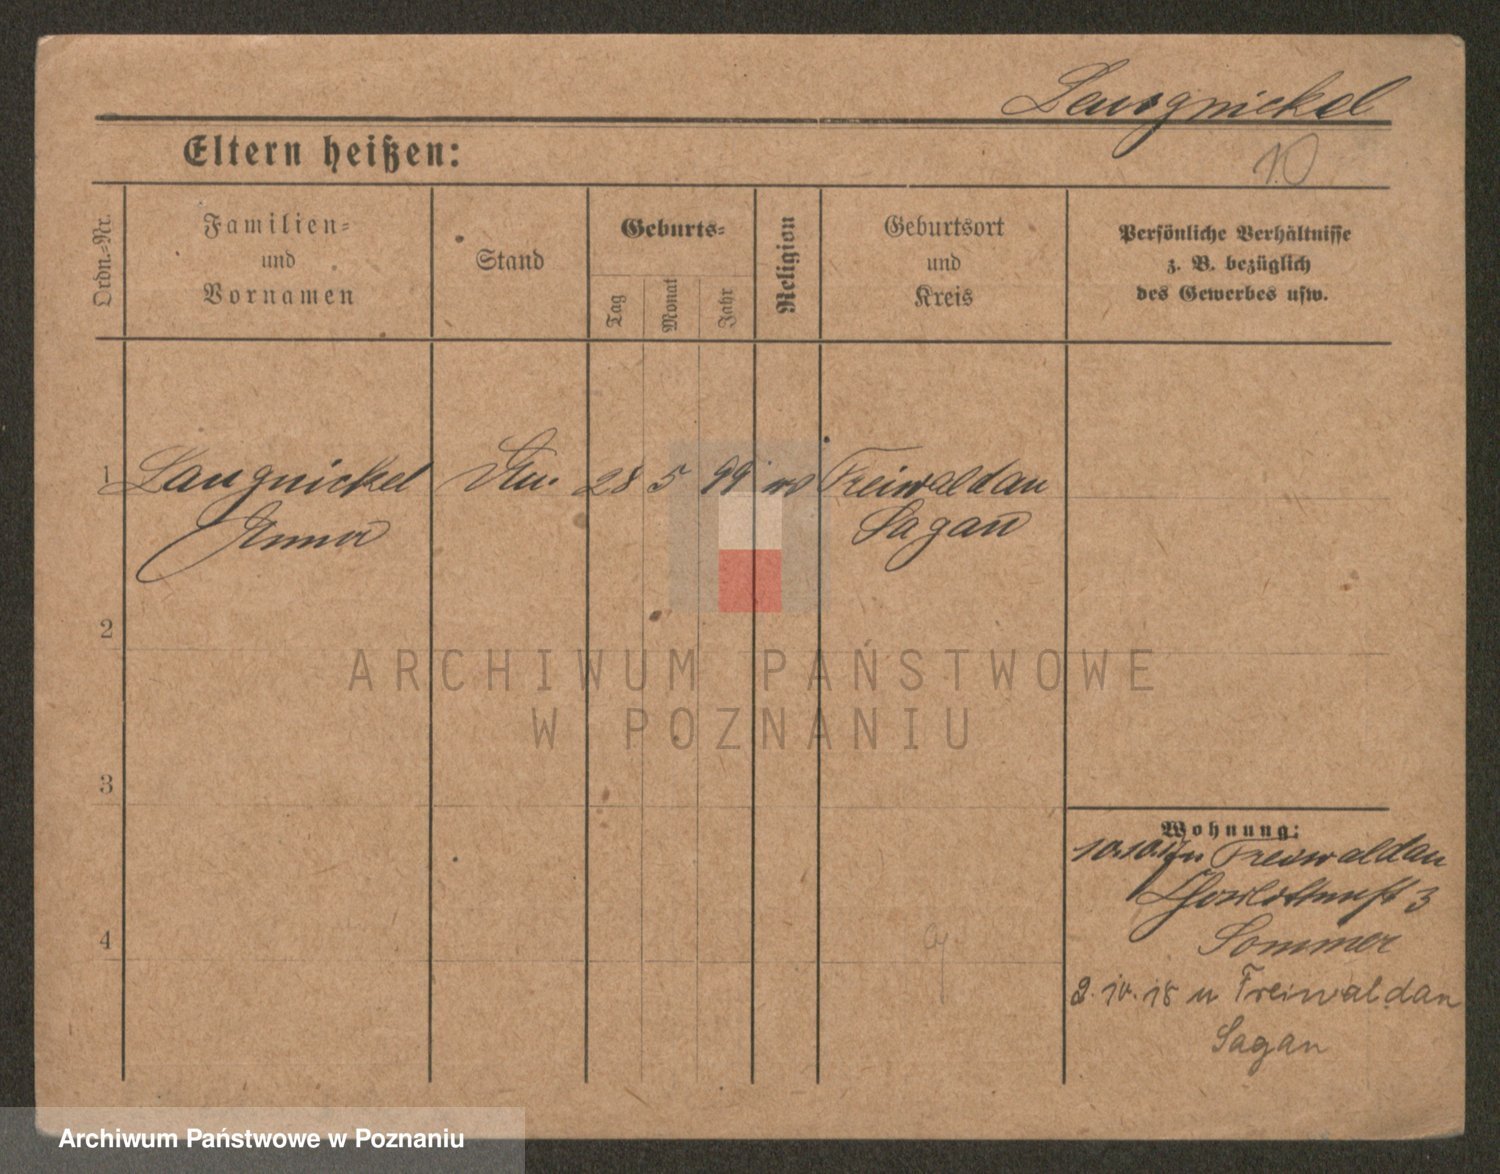 Langnickel
10
Eltern heißen:
Ordn.-Nr.
Familien-
und
Vornamen
Stand
Geburts-
Tag
Monat
Jahr
Religion
Geburtsort
und
Kreis
Persönliche Verhältnisse
z. B. bezüglich
des Gewerbes usw.
1 Langnickel 28 5 99 Freiwaldau
Anna Sagan
2
ARCHIWUM PAŃSTWOWE
W POZNANIU
3
Wohnung:
10.10.17 Freiwaldau
3
Sommer
4
2.10.18 n Freiwaldau
Sagan
Archiwum Państwowe w Poznaniu